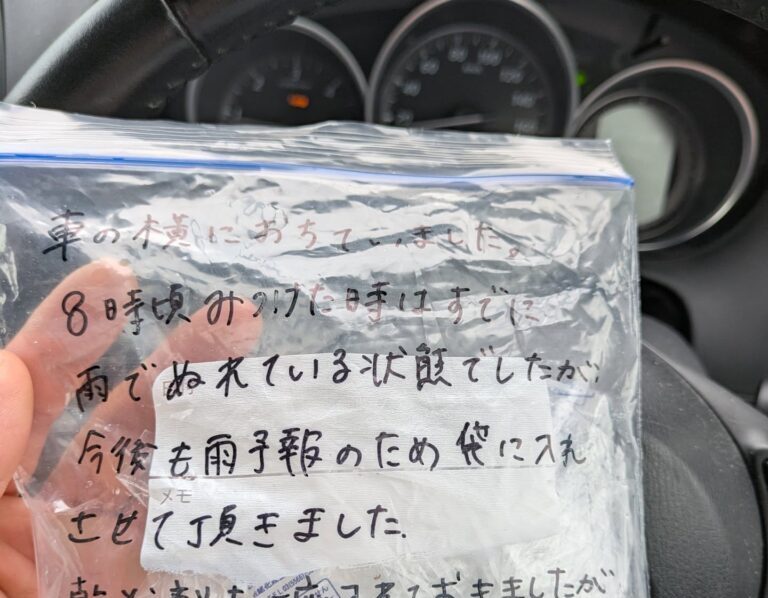 車の横におちていました。
8時頃みつけた時はすでに
雨でぬれている状態でしたが、
今後も雨予報のため袋に入れ
メモ
させて頂きました。
ておきましたが